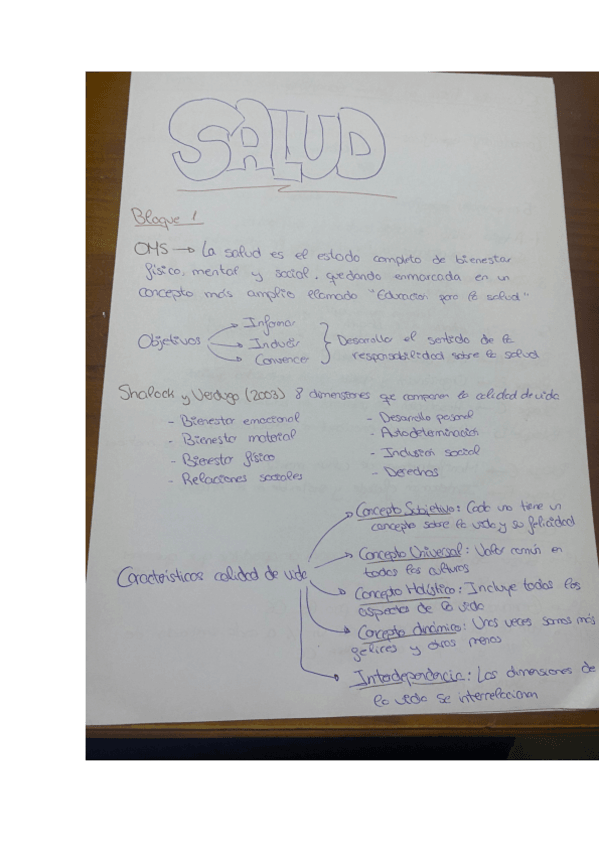 SALUD
Bloque 1
OMS → La salud es el estado completo de bienestar
físico, mental y social, quedando enmarcada en un
concepto más amplio llamado "Educación para la salud"
Objetivos → Informar
→ Inducir
→ Convencer
Desarrollar el sentido de la
responsabilidad sobre la salud
Shalock y Verdugo (2003) 8 dimensiones que componen la calidad de vida
- Bienestar emocional
- Bienestar material
- Bienestar físico
- Relaciones sociales
- Desarrollo personal
- Autodeterminación
- Inclusión social
- Derechos
Características calidad de vida
Concepto Subjetivo: Cada uno tiene un
concepto sobre la vida y su felicidad
Concepto Universal: Valor común en
todas las culturas
Concepto Holístico: Incluye todos los
aspectos de la vida
Concepto dinámico: Unas veces somos más
felices y otras menos
Interdependencia: Las dimensiones de
la vida se interrelacionan